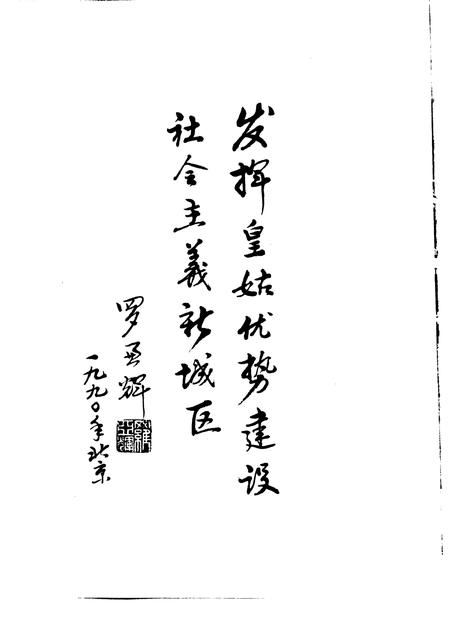 发挥皇姑优势建设
社会主义新城区
罗亚辉
一九九〇年北京